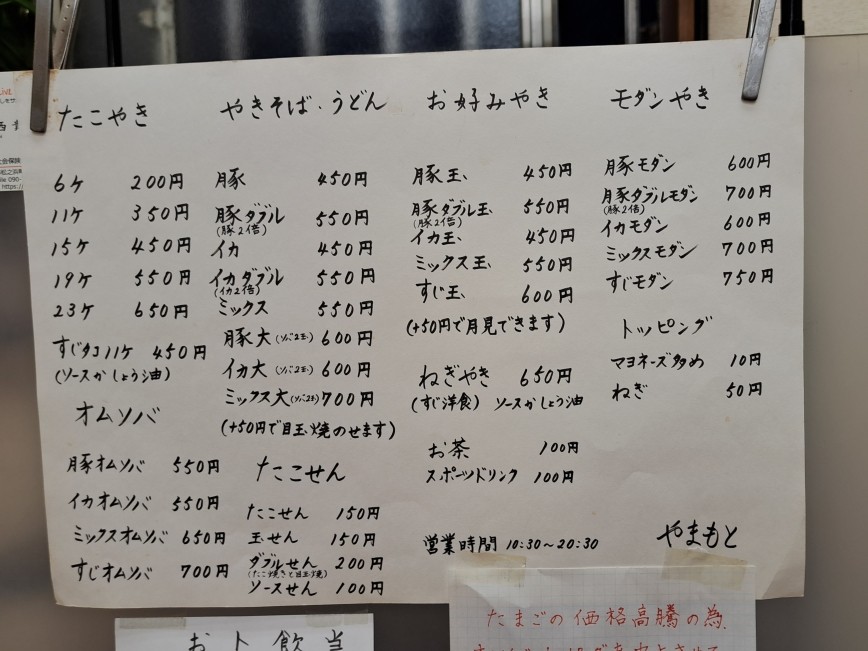 たこやき
6ケ 200円
11ケ 350円
15ケ 450円
19ケ 550円
23ケ 650円
すじタコ11ケ 450円
(ソースかしょう油)
オムソバ
豚オムソバ 550円
イカオムソバ 550円
ミックスオムソバ 650円
すじオムソバ 700円
やきそば・うどん
豚 450円
豚ダブル 550円
(豚2倍)
イカ 450円
イカダブル 550円
(イカ2倍)
ミックス 550円
豚大(ソバ2玉) 600円
イカ大(ソバ2玉) 600円
ミックス大(ソバ2玉) 700円
(+50円で目玉焼のせます)
たこせん
たこせん 150円
玉せん 150円
ダブルせん 200円
(たこ焼きと目玉焼)
ソースせん 100円
お好みやき
豚玉 450円
豚ダブル玉 550円
(豚2倍)
イカ玉 450円
ミックス玉 550円
すじ玉 600円
(+50円で月見できます)
ねぎやき 650円
(すじ洋食) ソースかしょう油
お茶 100円
スポーツドリンク 100円
営業時間 10:30~20:30
モダンやき
豚モダン 600円
豚ダブルモダン 700円
(豚2倍)
イカモダン 600円
ミックスモダン 700円
すじモダン 750円
トッピング
マヨネーズ多め 10円
ねぎ 50円
やまもと
たまごの価格高騰の為、